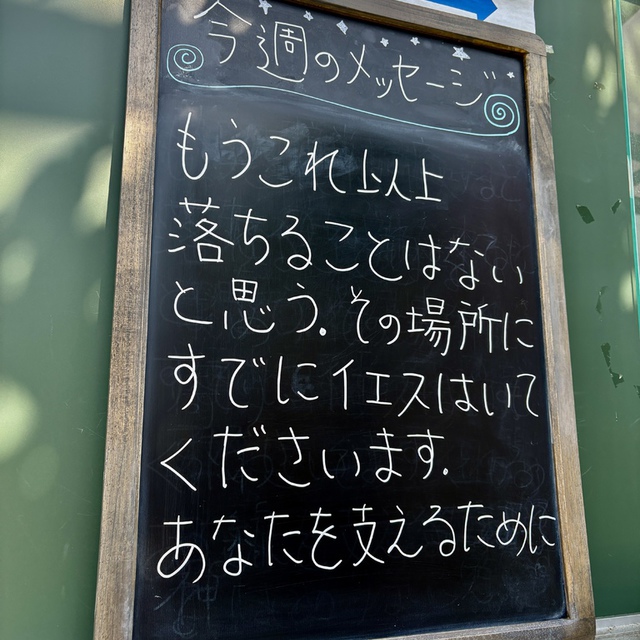 今週のメッセージ
もうこれ以上
落ちることはない
と思う。その場所に
すでにイエスはいて
くださいます.
あなたを支えるために